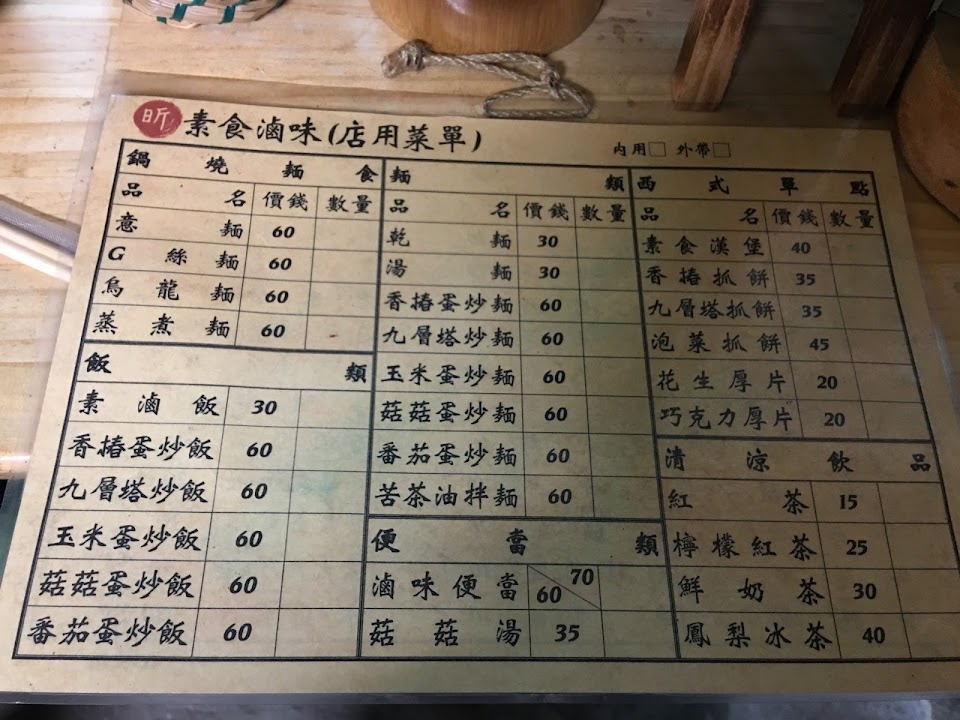 昕 素食滷味(店用菜單)
內用□ 外帶□
鍋燒麵食
品名 價錢 數量
意麵 60
G絲麵 60
烏龍麵 60
蒸煮麵 60
飯類
素滷飯 30
香椿蛋炒飯 60
九層塔炒飯 60
玉米蛋炒飯 60
菇菇蛋炒飯 60
番茄蛋炒飯 60
麵類
品名 價錢 數量
乾麵 30
湯麵 30
香椿蛋炒麵 60
九層塔炒麵 60
玉米蛋炒麵 60
菇菇蛋炒麵 60
番茄蛋炒麵 60
苦茶油拌麵 60
便當類
滷味便當 60/70
菇菇湯 35
西式單點
品名 價錢 數量
素食漢堡 40
香椿抓餅 35
九層塔抓餅 35
泡菜抓餅 45
花生厚片 20
巧克力厚片 20
清涼飲品
紅茶 15
檸檬紅茶 25
鮮奶茶 30
鳳梨冰茶 40